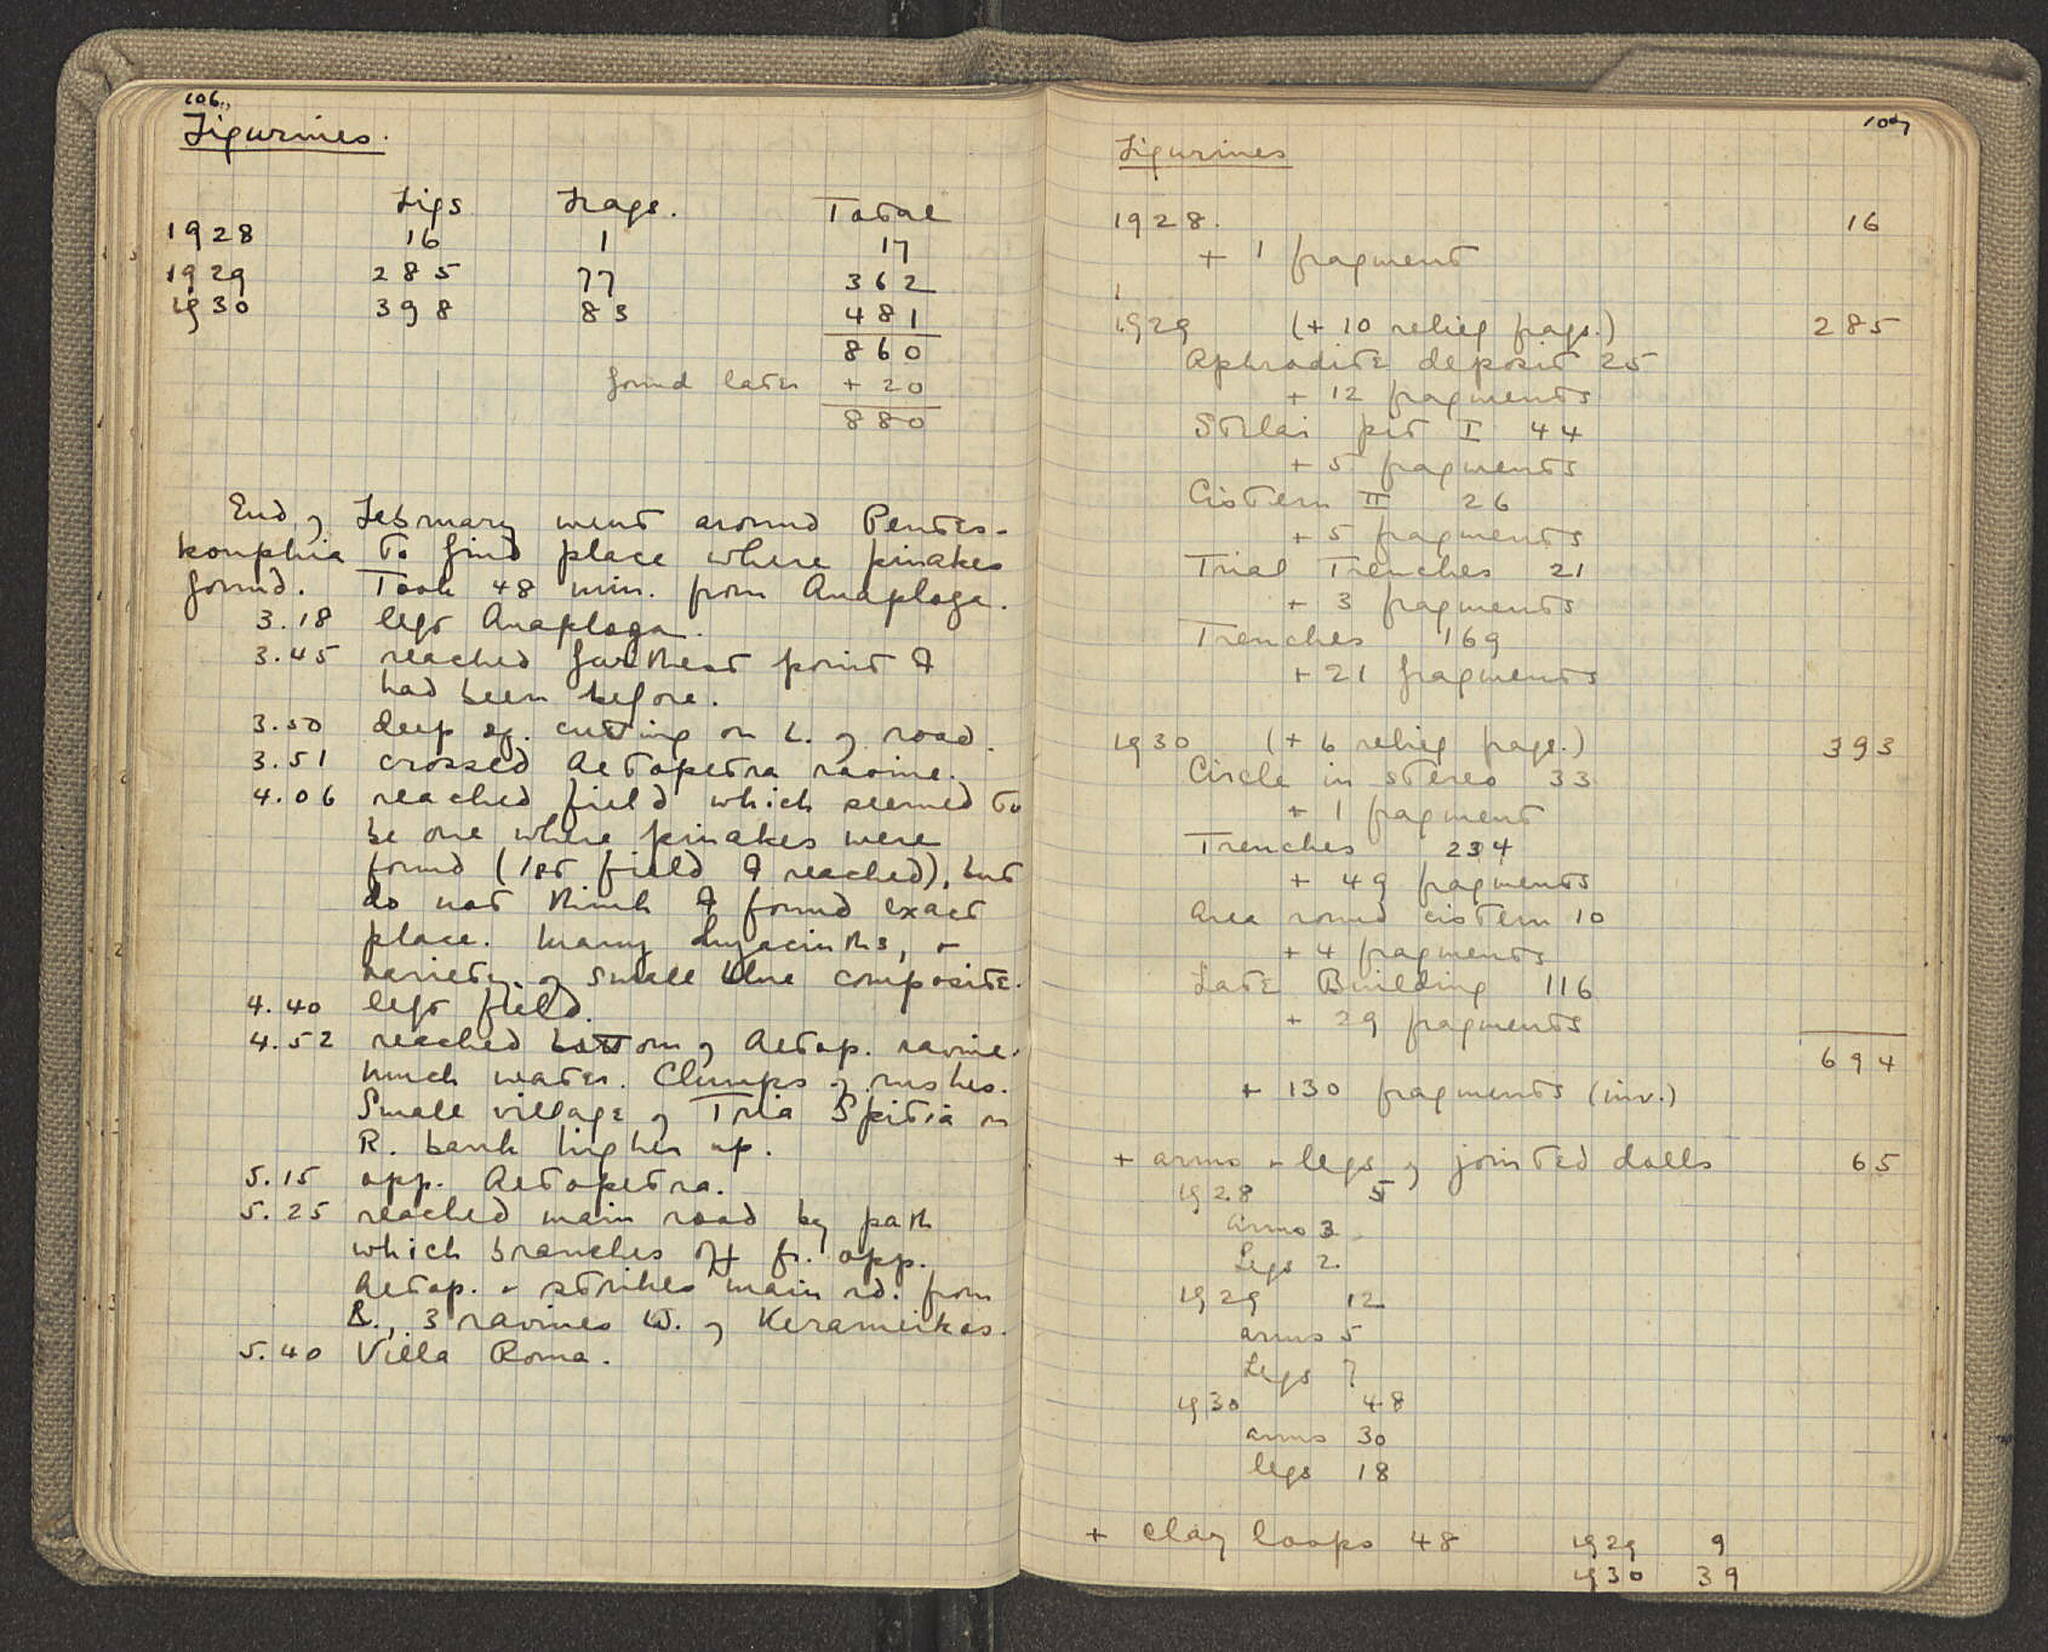 106.
Figurines.
Figs Frags. Total
1928 16 1 17
1929 285 77 362
1930 398 83 481
860
found later + 20
880
End of February went around Pentes-
kouphia to find place where pinakes
found. Took 48 min. from Anaploga.
3.18 left Anaploga.
3.45 reached farthest point I
had been before.
3.50 deep sq. cutting on L. of road.
3.51 crossed Aetopetra ravine.
4.06 reached field which seemed to
be one where pinakes were
found (1st field I reached), but
do not think I found exact
place. Many hyacinths, +
variety of small blue composite.
4.40 left field.
4.52 reached bottom of Aetop. ravine.
Much water. Clumps of rushes.
Small village of Tria Spitia on
R. bank higher up.
5.15 opp. Aetopetra.
5.25 reached main road by path
which branches off fr. opp.
Aetop. + strikes main rd. from
R., 3 ravines W. of Kerameikos.
5.40 Villa Roma.
107
Figurines
1928. 16
+ 1 fragment
1
1929 (+ 10 relief frags.) 285
Aphrodite deposit 25
+ 12 fragments
Stelai pit I 44
+ 5 fragments
Cistern II 26
+ 5 fragments
Trial Trenches 21
+ 3 fragments
Trenches 169
+ 21 fragments
1930 (+ 6 relief frags.) 393
Circle in stereo 33
+ 1 fragment
Trenches 234
+ 49 fragments
Area round cistern 10
+ 4 fragments
Late Building 116
+ 29 fragments
694
+ 130 fragments (inv.)
+ arms + legs of jointed dolls 65
1928 5
Arms 3
Legs 2
1929 12
arms 5
Legs 7
1930 48
arms 30
legs 18
+ clay loops 48 1929 9
1930 39